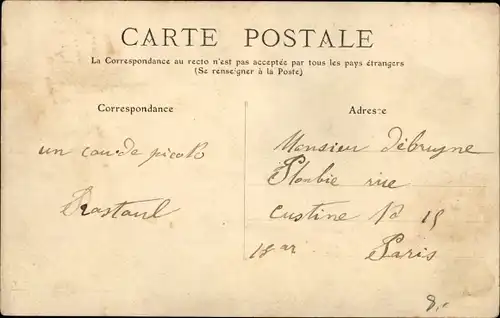 CARTE POSTALE
La Correspondance au recto n'est pas acceptée par tous les pays étrangers
(Se renseigner à la Poste)
Correspondance
Adresse
un cou de picolo
Rastoul
Monsieur Débruyne
Plonbie rue
Custine No 15
18 ar Paris